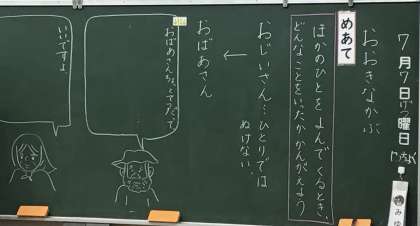 7月7日げつ曜日
おおきなかぶ
めあて
ほかのひとをよんでくるとき、
どんなことをいったかかんがえよう
おじいさん…ひとりでは
ぬけない。
←
おばあさん
おばあさんちょっとてつだって。
いいですよ
みゆ